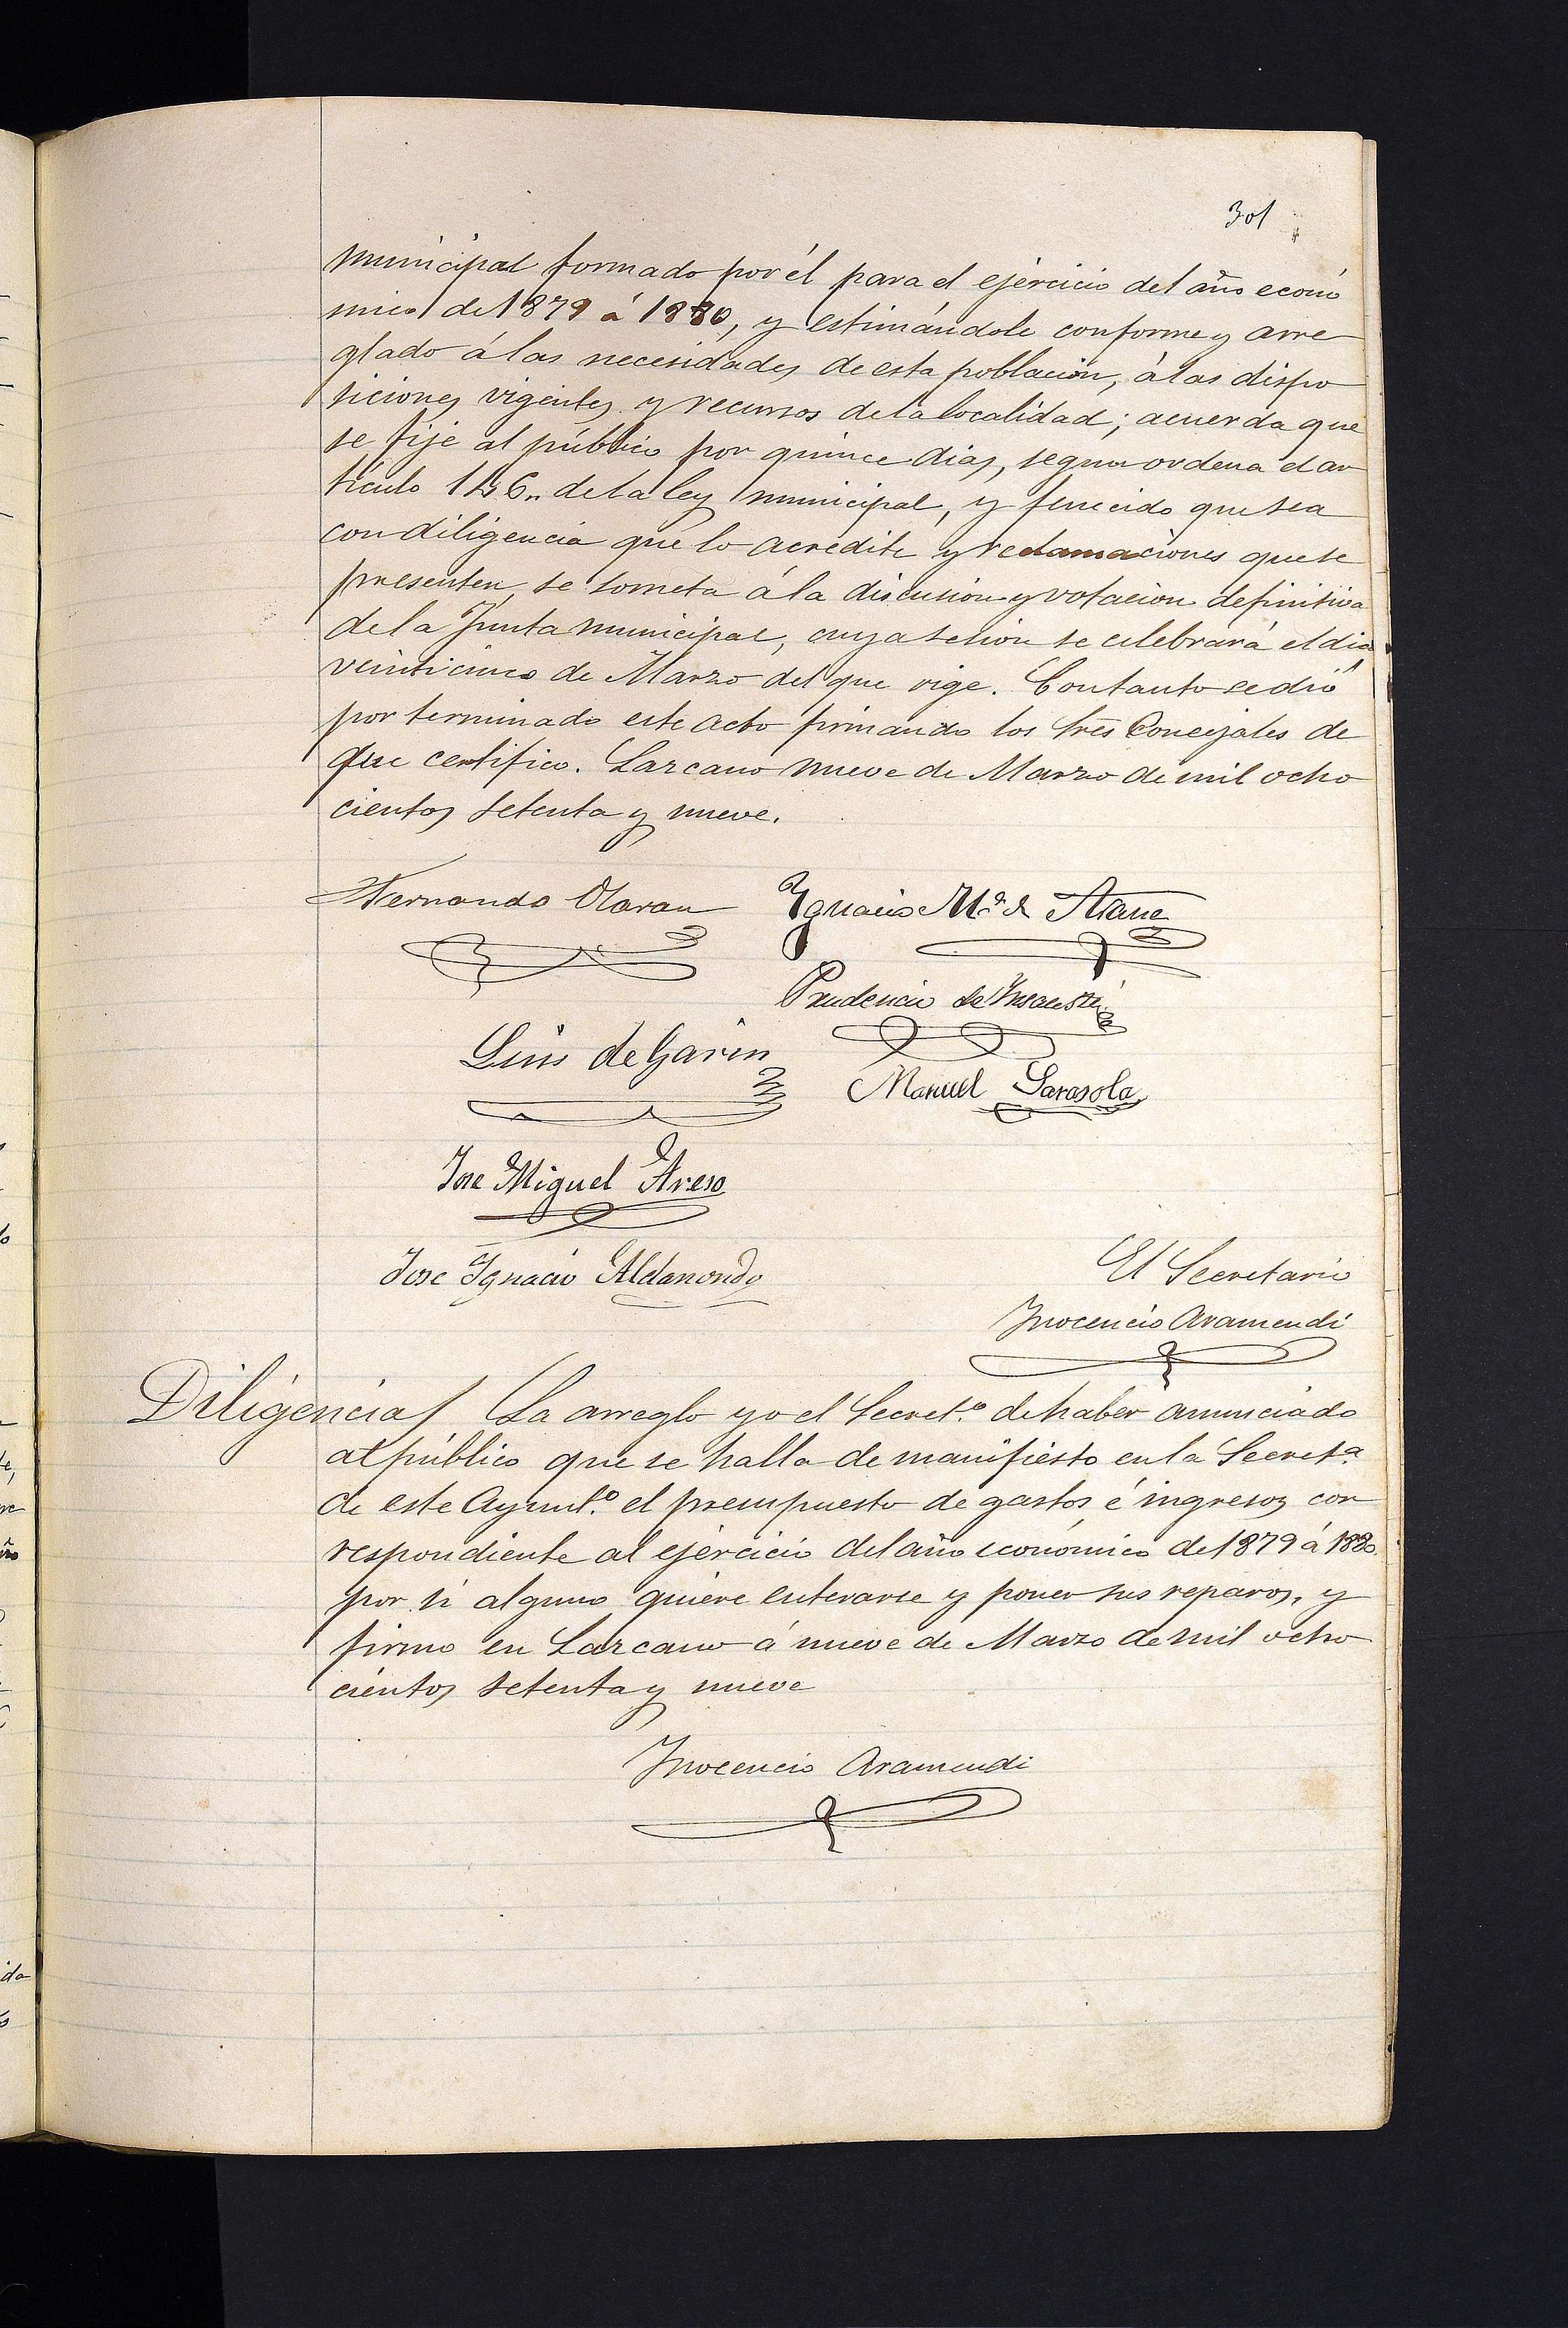 301
municipal formado por él para el ejercicio del año econó
mico de 1879 á 1880, y estimándole conforme y arre
glado á las necesidades de esta poblacion, á las dispo
siciones vigentes y recursos de la localidad; acuerda que
se fije al público por quince dias, segun ordena el ar
tículo 146,, de la ley municipal, y fenecido que sea
con diligencia que lo acredite y reclamaciones que se
presenten, se someta á la discusion y votacion definitiva
de la Junta municipal, cuya sesion se celebrará el dia
veinticinco de Marzo del que rige. Con tanto se dió
por terminado este acto firmando los Srēs Concejales de
que certifico. Lazcano nueve de Marzo de mil ocho
cientos setenta y nueve.
Fernando Olaran Ignacio Mª. de
Prudencio de Insausti
Luis de Garin
Manuel Sarasola
Jose Miguel Areso
Jose Ignacio Aldanondo El Secretario
Inocencio Aramendi
Diligencia La arreglo yo el Secret.º de haber anunciado
al público que se halla de manifiesto en la Secret.ª
de este Ayunt.º el presupuesto de gastos é ingresos cor
respondiente al ejercicio del año económico de 1879 á 1880
por si alguno quiere enterarse y poner sus reparos, y
firmo en Lazcano á nueve de Marzo de mil ocho
cientos setenta y nueve
Inocencio Aramendi